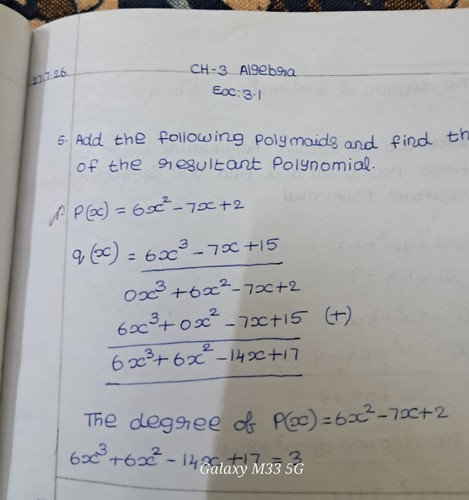 27.7.26
CH-3 Algebra
Exc: 3.1
5. Add the following Polymaids and find th
of the resultant Polynomial.
P(x) = 6x² - 7x + 2
q(x) = 6x³ - 7x + 15
0x³ + 6x² - 7x + 2
6x³ + 0x² - 7x + 15 (+)
6x³ + 6x² - 14x + 17
The degree of P(x) = 6x² - 7x + 2
6x³ + 6x² - 14x + 17 = 3
Galaxy M33 5G